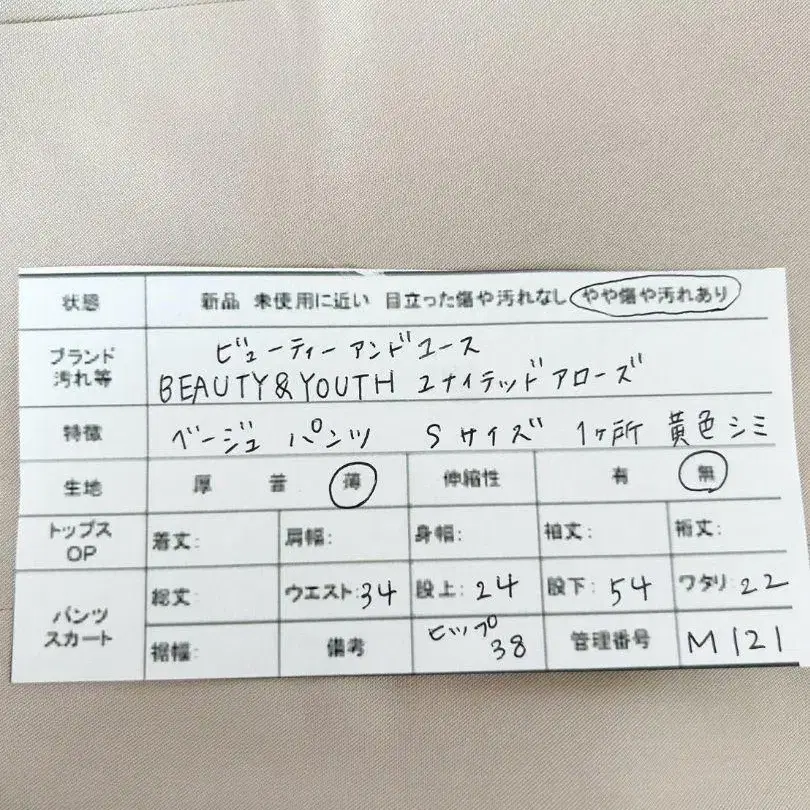 状態 新品 未使用に近い 目立った傷や汚れなし やや傷や汚れあり
ブランド ビューティーアンドユース
汚れ等 BEAUTY&YOUTH ユナイテッドアローズ
特徴 ベージュ パンツ Sサイズ 1ヶ所 黄色シミ
生地 厚 普 薄 伸縮性 有 無
トップス
OP 着丈: 肩幅: 身幅: 袖丈: 裄丈:
パンツ
スカート 総丈: ウエスト:34 股上:24 股下:54 ワタリ:22
裾幅: 備考 ヒップ 38 管理番号 M121